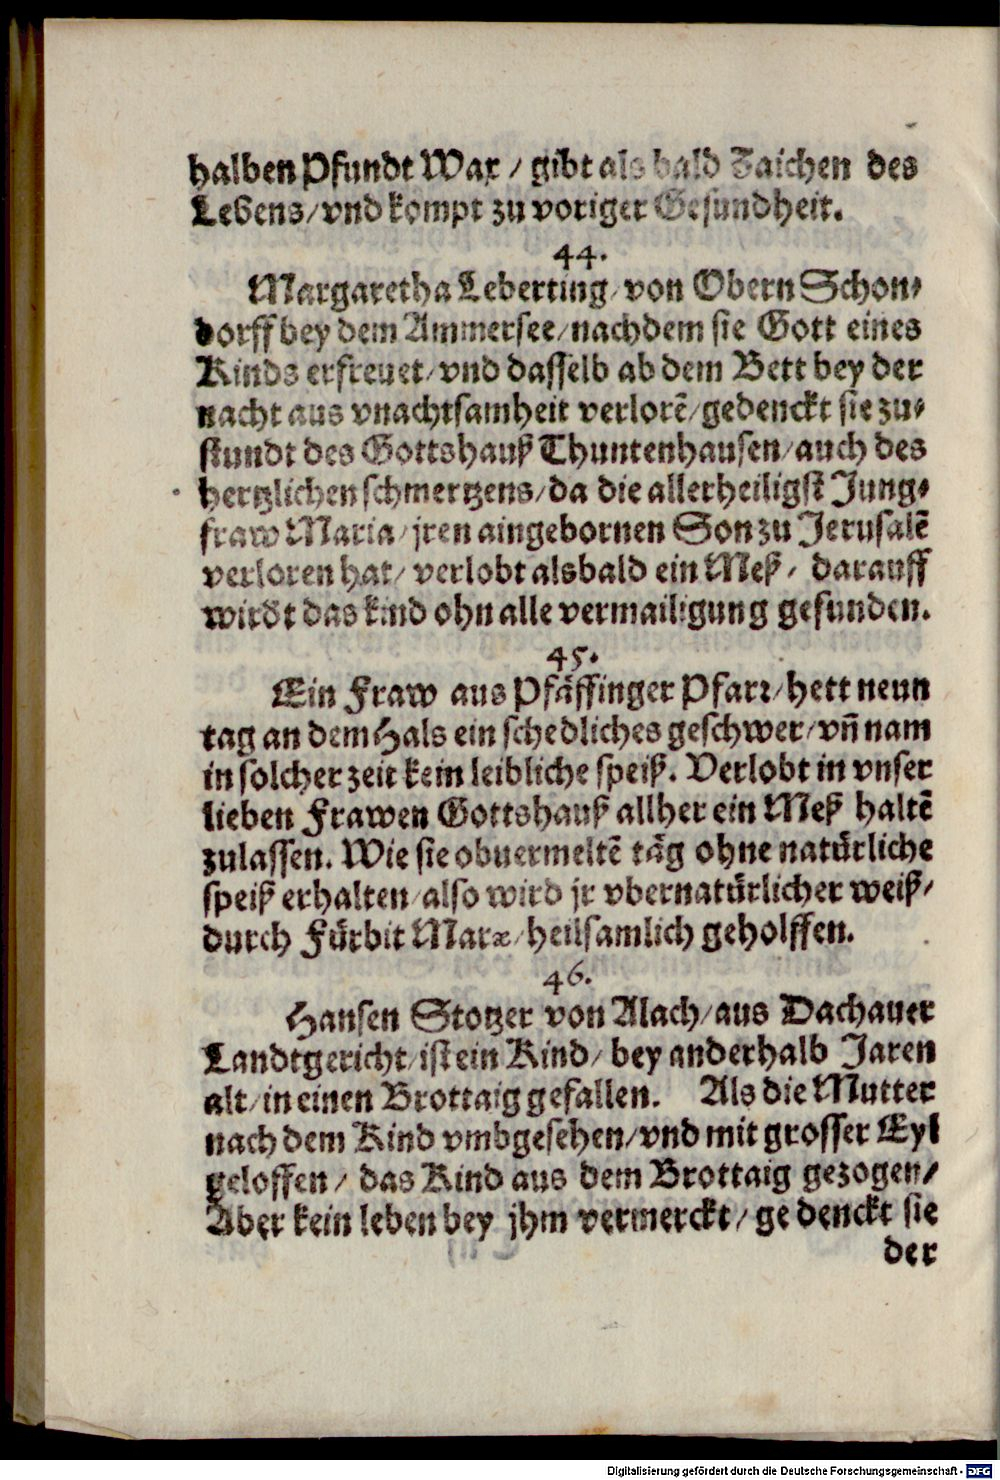 halben Pfundt Wax / gibt als bald Zaichen des
Lebens / vnd kompt zu voriger Gesundheit.
44.
Margaretha Leberting / von Obern Schon⸗
dorff bey dem Ammersee / nachdem sie Gott eines
Kinds erfreuet / vnd dasselb ab dem Bett bey der
nacht aus vnachtsamheit verlorē / gedenckt sie zu⸗
stundt des Gottshauß Thuntenhausen / auch des
hertzlichen schmertzens / da die allerheiligst Jung⸗
fraw Maria / jren aingebornen Son zu Jerusalē
verloren hat / verlobt alsbald ein Meß / darauff
wirdt das kind ohn alle vermailigung gefunden.
45.
Ein Fraw aus Pfäffinger Pfarr / hett neun
tag an dem Hals ein schedliches geschwer / vñ nam
in solcher zeit kein leibliche speiß. Verlobt in vnser
lieben Frawen Gottshauß allher ein Meß haltē
zulassen. Wie sie obuermeltē täg ohne natürliche
speiß erhalten / also wird jr vbernatürlicher weiß /
durch Fürbit Mariæ / heilsamlich geholffen.
46.
Hansen Stotzer von Alach / aus Dachauer
Landtgericht / ist ein Kind / bey anderhalb Jaren
alt / in einen Brottaig gefallen. Als die Mutter
nach dem Kind vmbgesehen / vnd mit grosser Eyl
geloffen / das Kind aus dem Brottaig gezogen /
Aber kein leben bey jhm vermerckt / gedenckt sie
der
Digitalisierung gefördert durch die Deutsche Forschungsgemeinschaft - DFG